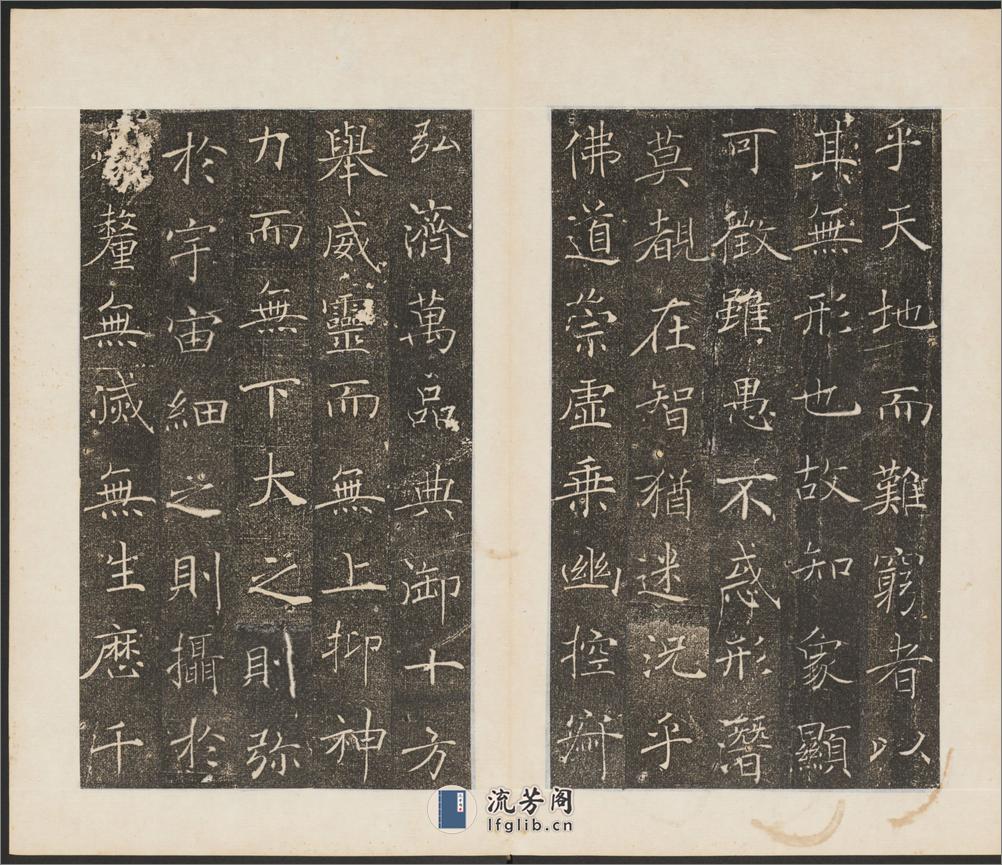 乎天地而難窮者以
其無形也故知象顯
可徵雖愚不惑形潛
莫覩在智猶迷況乎
佛道崇虛乗幽控
弘濟萬品典御十方
舉威靈而無上抑神
力而無下大之則弥
於宇宙細之則攝於
釐無滅無生歷千
流芳阁
lfglib.cn